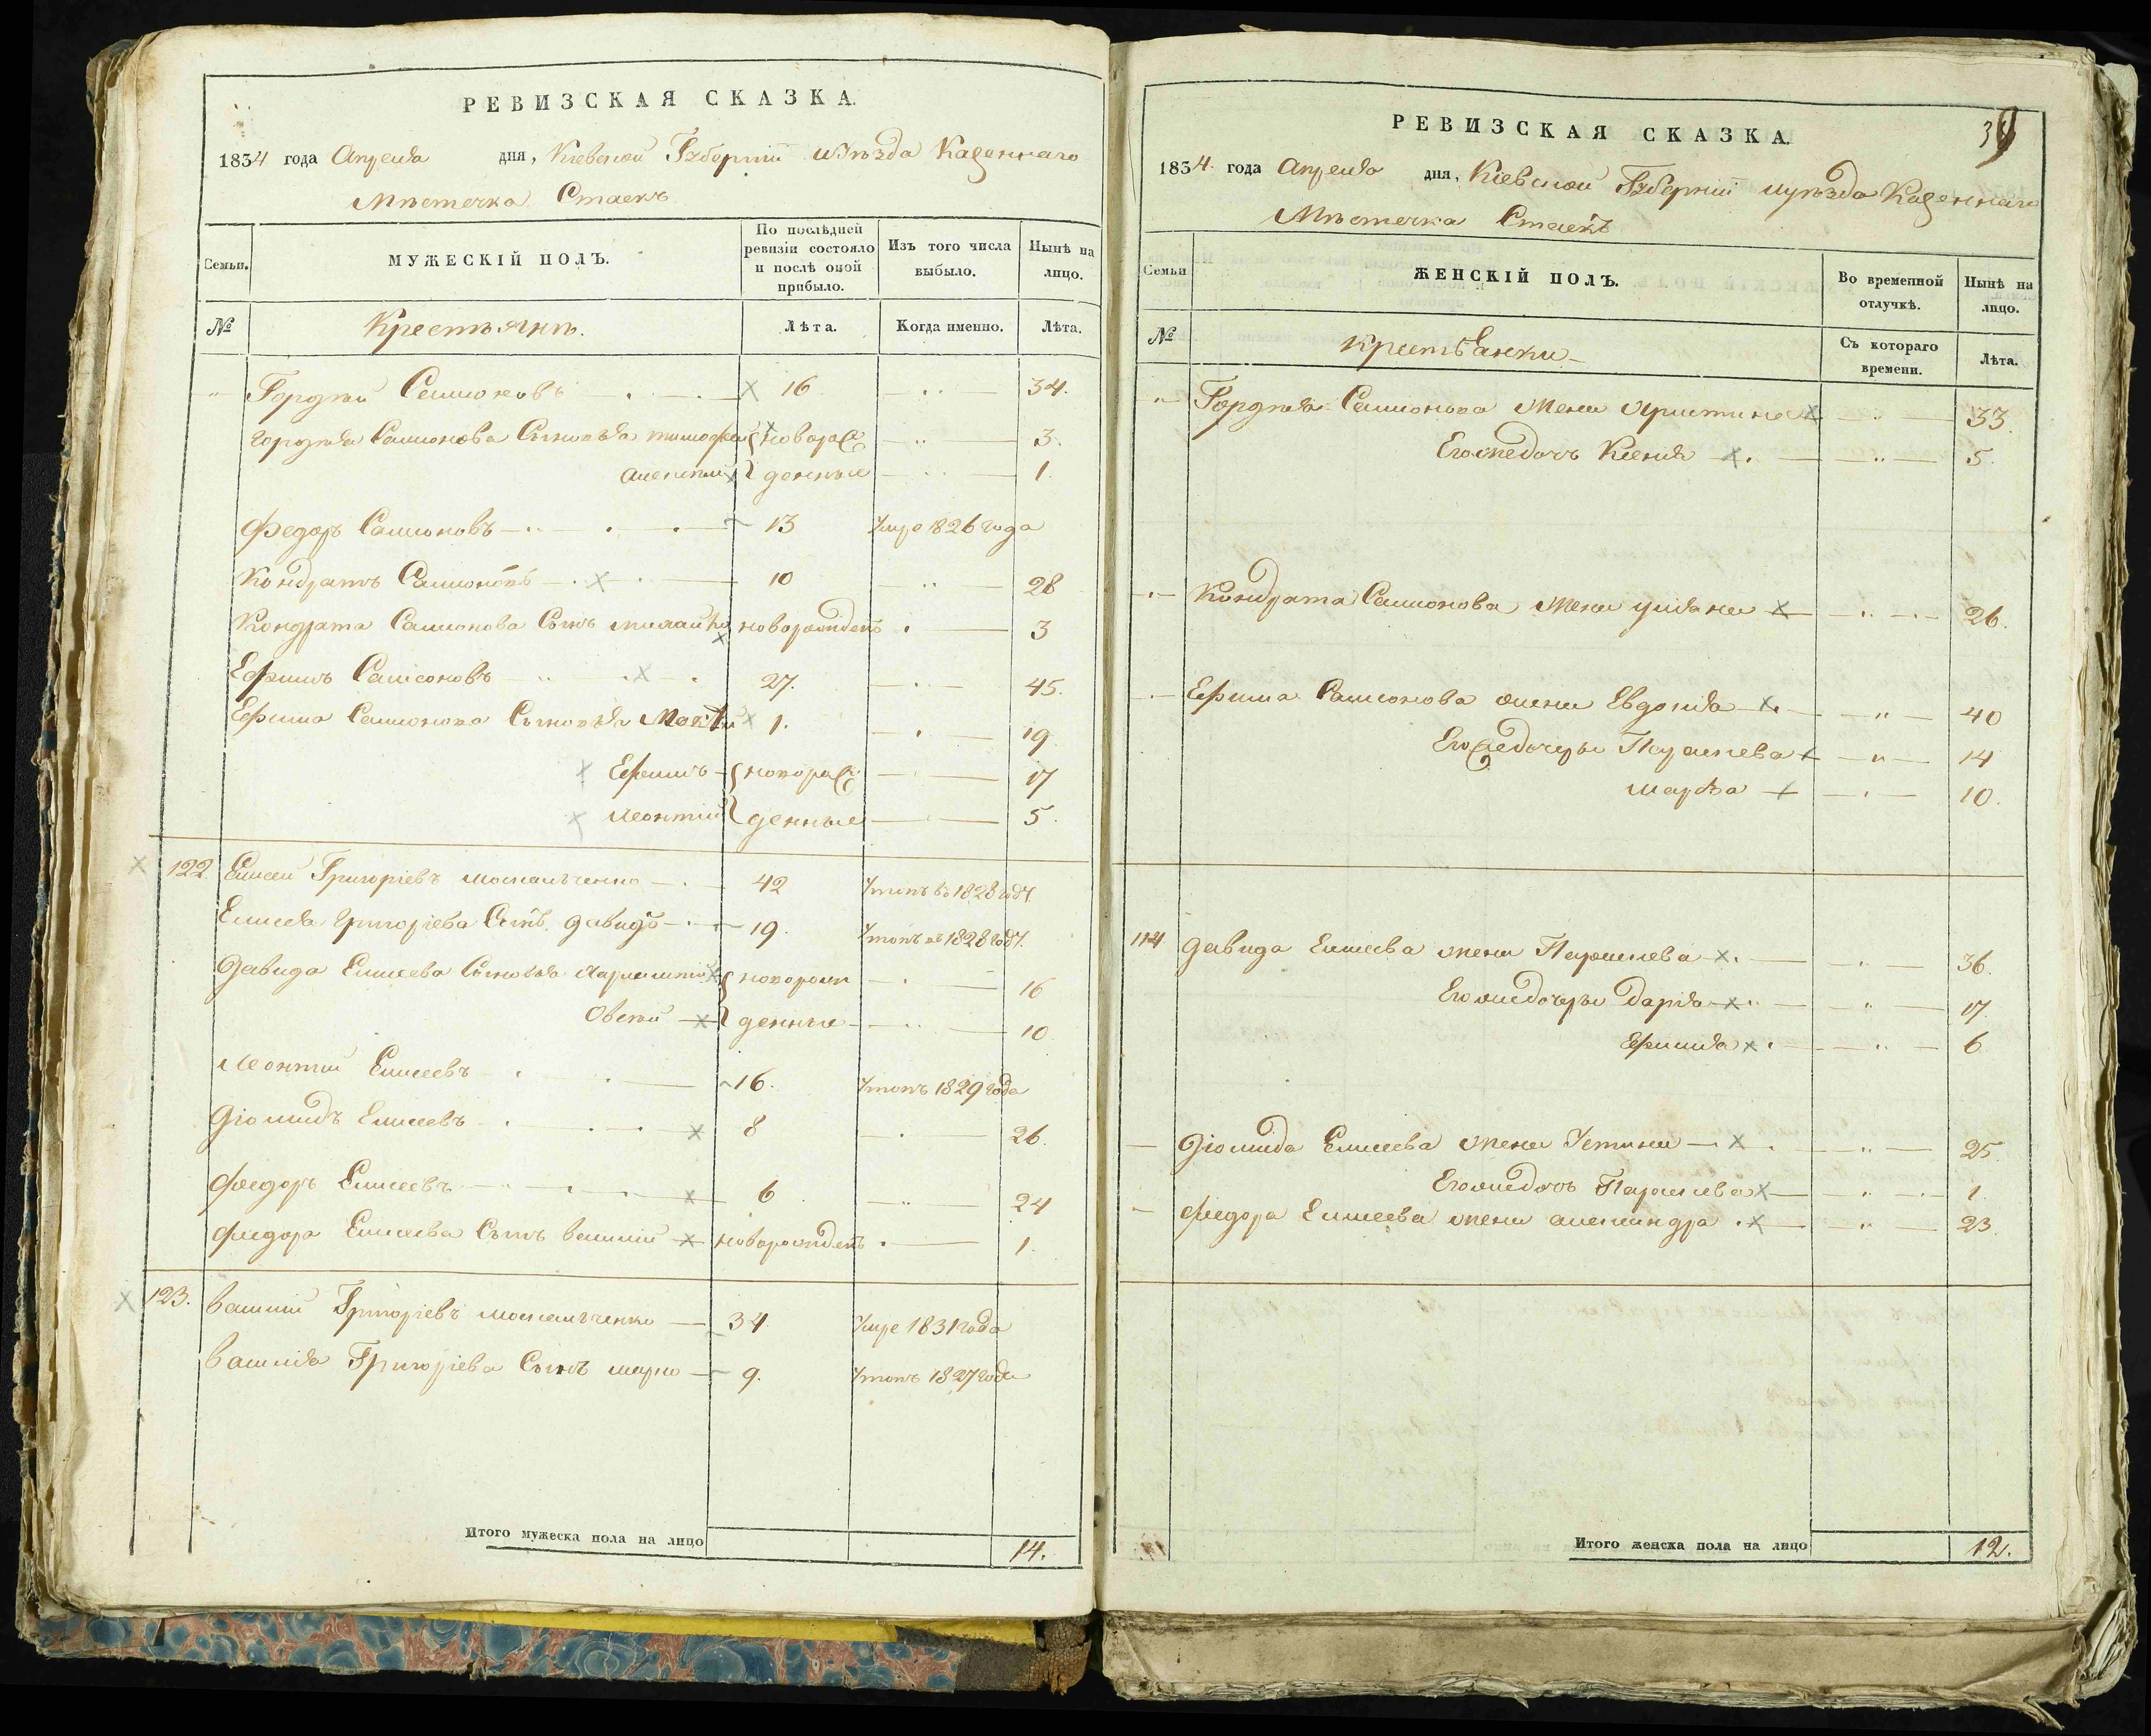 РЕВИЗСКАЯ СКАЗКА.
1834 года Апреля дня, Кіевской Губерніи Уѣзда Казеннаго
Мѣстечка Стаекъ
Семьи.
МУЖЕСКІЙ ПОЛЪ.
По послѣдней ревизіи состояло и послѣ оной прибыло.
Изъ того числа выбыло.
Нынѣ на лицо.
№
Крестьянъ.
Лѣта.
Когда именно.
Лѣта.
Гордѣй Самсоновъ 16 34.
Гордѣя Самсонова Сыновья Тимофей новорож 3.
Алексѣй денные 1.
Федоръ Самсоновъ 13 Умре 1826 года
Кондратъ Самсоновъ 10 28
Кондрата Самсонова Сынъ Михайло новорожденъ 3
Ефимъ Самсоновъ 27. 45.
Ефима Самсонова Сыновья 1. 19
Ефимъ новорож 17
Леонтій денные 5.
122 Елисей Григоріевъ Москальченко 42 в 1828 году
Елисея Григоріева Сынъ Давидъ 19. в 1828 году
Давида Елисеева Сыновья новорож 16
денные 10
Леонтій Елисеевъ 16. 1829 года
Діомидъ Елисеевъ 8 26.
Федоръ Елисеевъ 6 24
Федора Елисеева Сынъ Василій новорожденъ 1.
123. Василій Григоріевъ Москальченко 34 Умре 1831 года
Василія Григоріева Сынъ Марко 9. 1827 года
Итого мужеска пола на лицо 14.
РЕВИЗСКАЯ СКАЗКА.
39
1834 года Апреля дня, Кіевской Губерніи Уѣзда Казеннаго
Мѣстечка Стаекъ
Семьи
ЖЕНСКІЙ ПОЛЪ.
Во временной отлучкѣ.
Нынѣ на лицо.
№
Крестьянки
Съ котораго времени.
Лѣта.
Гордѣя Самсонова жена Христина 33.
Его же дочь Ксенія 5.
Кондрата Самсонова жена Уліана 26.
Ефима Самсонова жена Евдокія 40
Его же дочери Параскева 14
Марѳа 10.
114 Давида Елисеева жена Параскева 36.
Его же дочери Дарія 17
Ефимія 6
Діомида Елисеева жена Устина 25.
Его же дочь Параскева 1
Федора Елисеева жена Александра 23.
Итого женска пола на лицо 12.